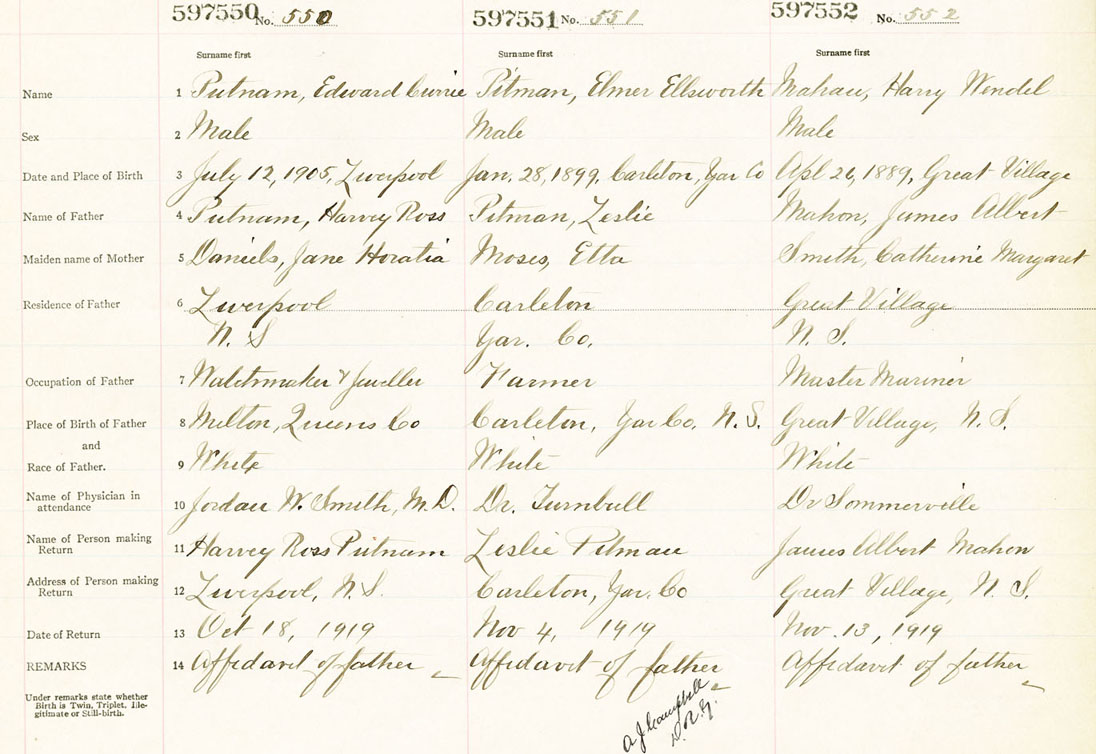 597550 No. 550 597551 No. 551 597552 No. 552
Surname first Surname first Surname first
Name 1 Putnam, Edward Currie Pitman, Elmer Ellsworth Mahan, Harry Wendel
Sex 2 Male Male Male
Date and Place of Birth 3 July 12, 1905, Liverpool Jan. 28, 1899, Carleton, Yar Co Apl 26, 1889, Great Village
Name of Father 4 Putnam, Harvey Ross Pitman, Leslie Mahon, James Albert
Maiden name of Mother 5 Daniels, Jane Horatia Moses, Etta Smith, Catherine Margaret
Residence of Father 6 Liverpool Carleton Great Village
N. S Yar. Co. N. S.
Occupation of Father 7 Watchmaker & Jeweller Farmer Master Mariner
Place of Birth of Father 8 Milton, Queens Co Carleton, Yar Co. N. S. Great Village, N. S.
and
Race of Father. 9 White White White
Name of Physician in attendance 10 Jordan W. Smith, M. D. Dr. Turnbull Dr Sommerville
Name of Person making Return 11 Harvey Ross Putnam Leslie Pitman James Albert Mahon
Address of Person making Return 12 Liverpool, N. S. Carleton, Yar. Co Great Village, N. S.
Date of Return 13 Oct 18, 1919 Nov 4, 1919 Nov. 13, 1919
REMARKS 14 Affidavit of father Affidavit of father Affidavit of father
Under remarks state whether
Birth is Twin, Triplet, Ille-
gitimate or Still-birth.
A. J. Campbell
D. R. G.